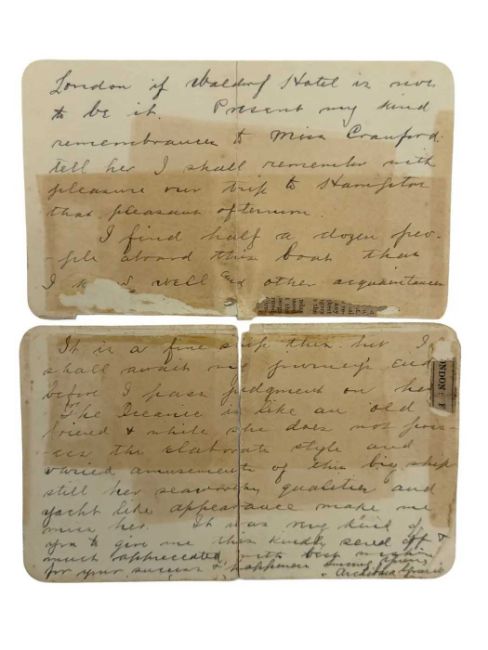 London if Waldorf Hotel is not
to be it. Present my kind
remembrances to Miss Crawford
tell her I shall remember with
pleasure our trip to Hampton
that pleasant afternoon.
I find half a dozen peo-
ple aboard this boat that
I well other acquaintances
It is a fine ship this but I
shall await my journey's end
before I pass judgment on her.
The Oceanic is like an old
friend & while she does not poss-
ess the elaborate style and
varied amusements of this big ship
still her seaworthy qualities and
yacht like appearance make me
miss her. It was very kind of
you to give me this kindly send off &
much appreciated with best wishes
for your success & happiness
Archibald Gracie
ONDON